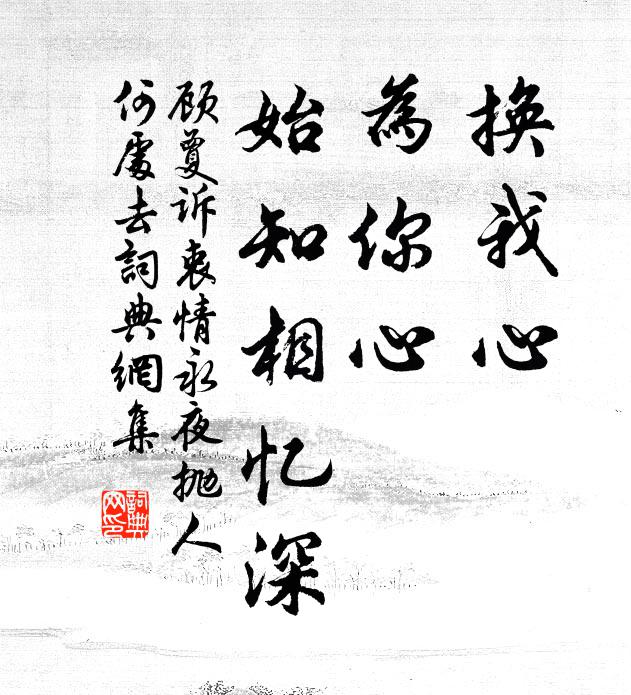 换我心
為你心
始知相忆深
顾夐诉衷情永夜抛人
何處去詞典網集
詞典
网印